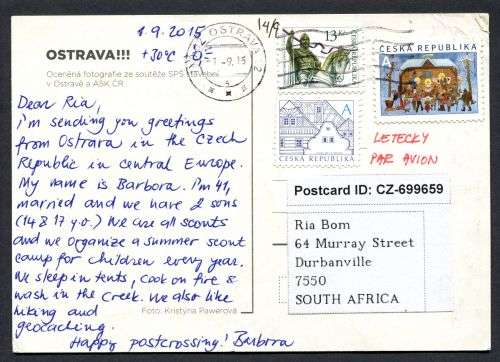 1.9.2015
+30°C
14/9
OSTRAVA!!!
Oceněná fotografie ze soutěže SPŠ stavební
v Ostravě a ASK ČR
OSTRAVA 2
-1.-9.15
13 Kč
A
ČESKÁ REPUBLIKA
A
ČESKÁ REPUBLIKA
LETECKY
PAR AVION
Dear Ria,
i'm sending you greetings
from Ostrava in the Czech
Republic in central Europe.
My name is Barbora. I'm 41,
married and we have 2 sons
(14 & 17 y.o.) We are all scouts
and we organize a summer scout
camp for children every year.
We sleep in tents, cook on fire &
wash in the creek. We also like
hiking and
geocaching.
Happy postcrossing! Barbora
Foto: Kristýna Pawerová
Postcard ID: CZ-699659
Ria Bom
64 Murray Street
Durbanville
7550
SOUTH AFRICA